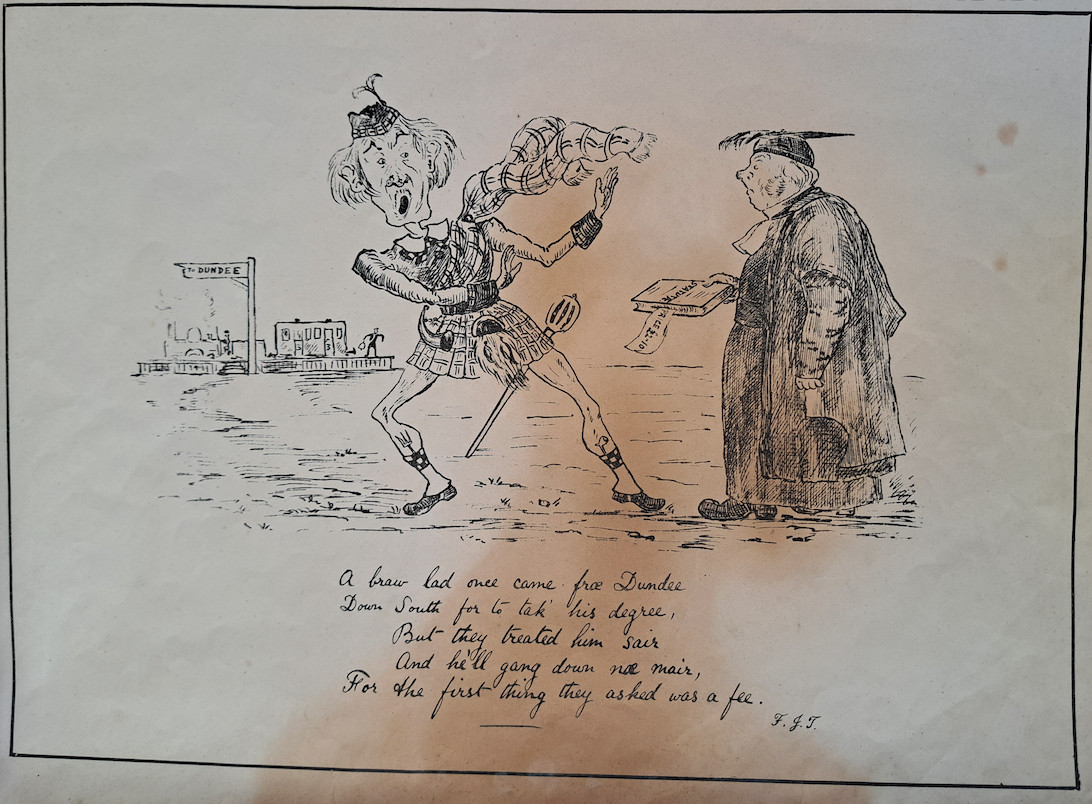 To DUNDEE
STATUTES
FEE £2-10
A braw lad once came frae Dundee
Down South for to tak' his degree,
But they treated him sair
And he'll gang down nae mair,
For the first thing they asked was a fee.
F. J. T.